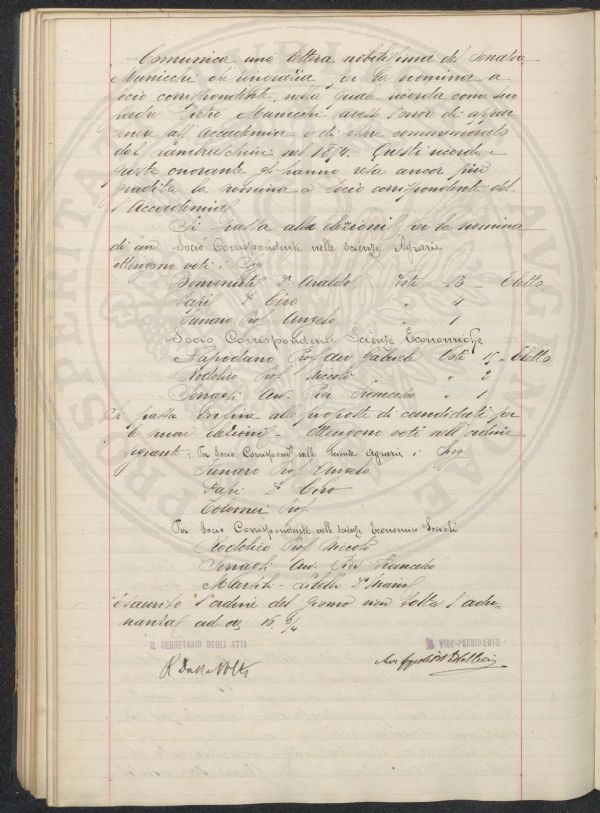 Comunica una lettera nobilissima del Senatore
Municchi che ringrazia per la nomina a
socio corrispondente, nella quale ricorda come suo
padre Municchi avesse l'onor di appar
tenere all'Accademia e di esser commemorato
dal Lambruschini nel 1874. Questi ricordi
onorante gli hanno resa ancor più
gradita la nomina a Socio corrispondente del
l'Accademia
Si passa alle elezioni per la nomina
di un Socio Corrispondente nelle scienze Agrarie
ottengono voti i Sigg
Benvenuti Dr Voti 13 - Eletto
Papi Dr Ciro " 4
Funaro Prof Angelo " 1
Socio Corrispondente Scienze Economiche
Napodano Prof Avv Gabriele Voti 15 - Eletto
Rodolico Prof Niccolò " 2
Avv. Pier Francesco " 1
Si passa infine alle proposte di candidati per
le nuove elezioni - Ottengono voti nell'ordine
seguente: Per Socio Corrispondte nelle scienze Agrarie i Sigg
Funaro Prof Angelo
Papi Dr Ciro
Tolomei Prof
Per Socio Corrispondente nelle scienze Economico Sociali
Rodolico Prof Niccolò
Avv. Pier Francesco
Dr
Esaurito l'ordine del giorno vien tolta l'adu-
nanza ad ore 15. 3/4
IL SEGRETARIO DEGLI ATTI
IL VICE-PRESIDENTE
R Dalla Volta